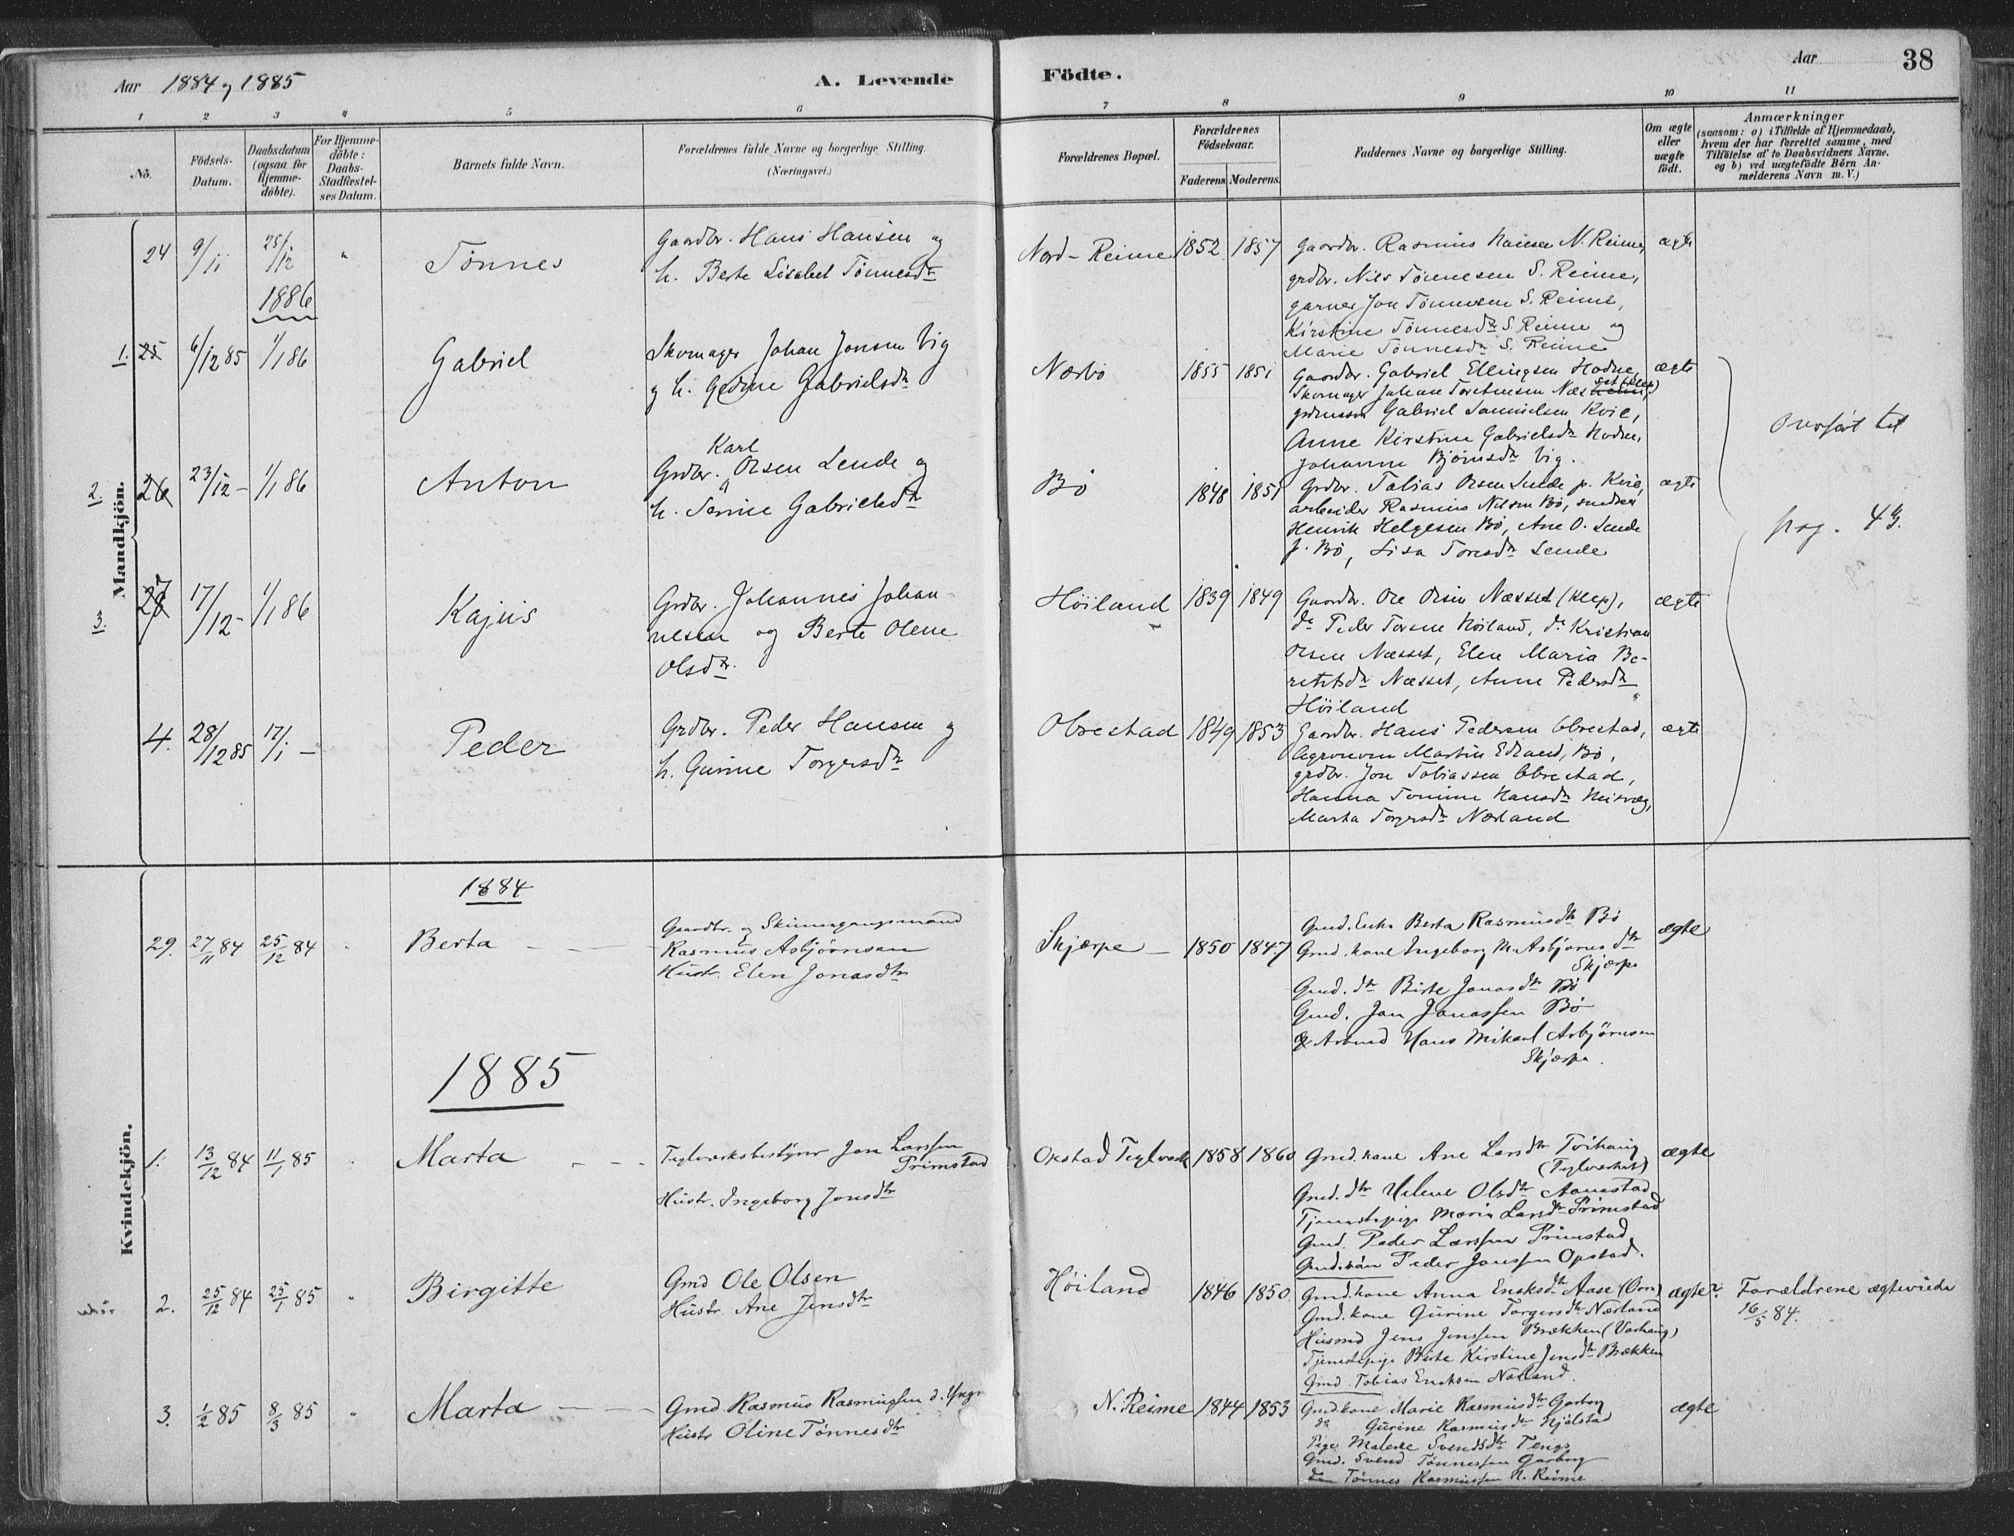 Aar 1884 og 1885
A. Levende Födte.
Aar 38
1 2 3 4 5 6 7 8 9 10 11
No.
Födsels-Datum.
Daabsdatum (ogsaa for Hjemme-döbte).
For Hjemme-döbte: Daabs-Stadfæstel-ses Datum.
Barnets fulde Navn.
Forældrenes fulde Navne og borgerlige Stilling. (Næringsvei.)
Forældrenes Bopæl.
Forældrenes Födselsaar.
Faderens. Moderens.
Faddernes Navne og borgerlige Stilling.
Om ægte eller uægte födt.
Anmærkninger
(saasom: a) i Tilfælde af Hjemmedaab,
hvem der har forrettet samme, med
Tilföielse af to Daabsvidners Navne.
og b) ved uægtefödte Börn An-
melderens Navn m. V.)
Mandkjön.
24 9/11 25/12 " Tönnes
Gaardbr. Hans Hansen og
h. Berte Lisabet Tönnesdtr
Nord-Reime 1852 1857
Gaardbr. Rasmus Hansen N. Reime,
grdbr. Nils Tönnesen S. Reime,
garver Jon Tönnesen S. Reime,
Kirstine Tönnesdtr S. Reime og
Marie Tönnesdtr S. Reime
ægte
1886
1. 25 6/12 85 1/1 86 Gabriel
Skomager Johan Jonsen Vig
og h. Gurine Gabrielsdtr
Nærbö 1855 1851
Gaardbr. Gabriel Ellingsen Hodne,
Skomager Johan Torstensen Næs
Gabriel Samuelsen Kvie,
Anne Kirstine Gabrielsdtr Hodne,
Johanne Bjørnsdtr Vig.
ægte
Overfört til
pag. 43.
2. 26 23/12 - 1/1 86 Anton
Karl
Grdbr. Olsen Lende og
h. Serine Gabrielsdtr
Bö 1848 1851
Grdbr. Tobias Olsen Lende p. Kvie,
arbeider Rasmus Nilsen Bö, snedker
Henrik Helgesen Bö, Ane O. Lende
p. Bö, Lisa Toresdtr Lende
ægte
3. 27 17/12 - 1/1 86 Kajus
Grdbr. Johannes Johan-
nesen og Berte Olene
Olsdtr.
Höiland 1839 1849
Gaardbr. Ole Olsen Næsset (Klep),
do Peder Torsen Höiland, do Kristian
Olsen Næsset, Elen Maria Be-
retitsdtr Næsset, Anne Pedersdtr
Höiland
ægte
4. 28/12 85 17/1 - Peder
Grdbr. Peder Hansen og
h. Gurine Torgersdtr
Obrestad 1849 1853
Gaardbr. Hans Pedersen Obrestad,
Agronom Martin Edland, Bö,
grdbr. Jon Tobiassen Obrestad,
Hanna Tomine Hansdtr
Marta Torgersdtr Nærland
ægte
Kvindekjön.
1884
29. 27/11 84 25/12 84 " Berta
Gaardbr. og Skinngangsmand
Rasmus Asbjörnsen
Hustr. Elen Jonasdtr
Skjærpe 1850 1847
Gmd. Enke Berta Rasmusdtr Bö
Gmd. kone Ingeborg M. Asbjörnsdtr
Skjærpe
Gmd. dtr Birte Jonasdtr Bö
Gmd. Jan Jonassen Bö
Arbmd Hans Mikael Asbjörnsen
Skjærpe.
ægte
1885
1. 13/12 84 11/1 85 Marta
Teglværksbestyrer Jon Larssen
Primstad
Hustr. Ingeborg Jonsdtr
Opstad Teglverk 1858 1860
Gmd. kone Ane Larsdtr Tvihaug
(Teglverket)
Gmd. dtr Helene Olsdtr Aanestad
Tjenestepige Maria Larsdtr Primstad
Gmd. Peder Larssen Primstad
Gmd. sön Peder Jonssen Opstad.
ægte
2. 25/12 84 25/1 85 " Birgitte
Gmd Ole Olsen
Hustr. Ane Jensdtr
Höiland 1846 1850
Gmd. kone Anna Eriksdtr Aase (Orre)
Gmd. kone Gurine Torgersdtr Nærland
Husmd Jens Jenssen Brækken (Varhaug)
Tjenestepige Birte Kirstine Jensdtr Brækken
Gmd Tobias Ericksen Nærland.
ægte?
Forældrene ægteviede
16/5 84.
3. 1/2 85 8/3 85 " Marta
Gmd Rasmus Rasmussen d. Yngr
Hustr Oline Tönnesdtr
N. Reime 1844 1853
Gmd kone Marie Rasmusdtr Garborg
do Gurine Rasmusdtr Njölstad
Pige Malene Svendsdtr Tengs
Gmd. Svend Tönnessen Garborg
do Tönnes Rasmussen N. Reime
ægte